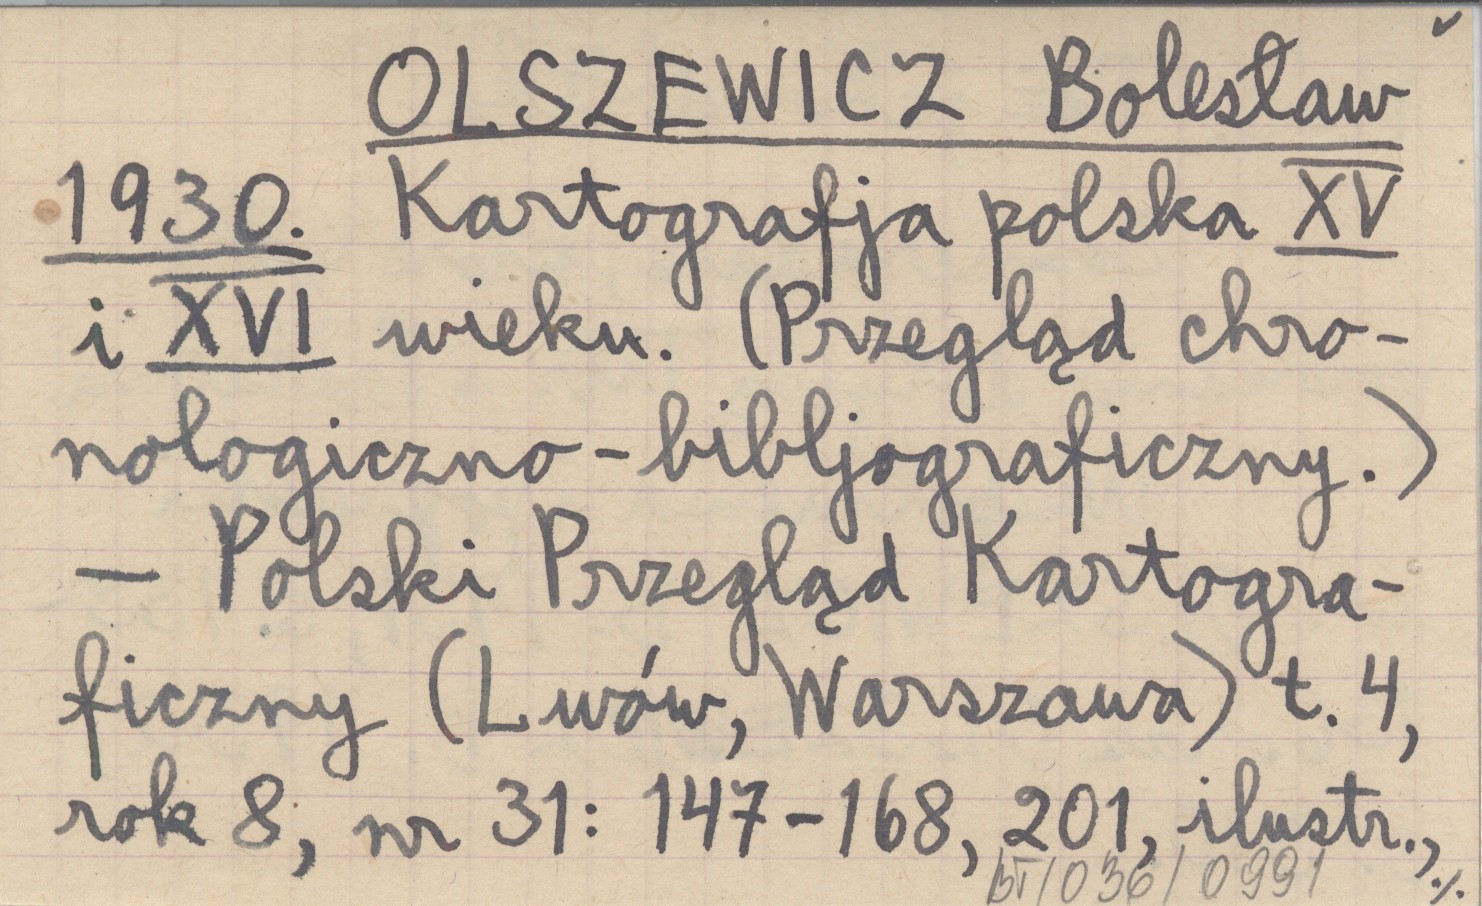 OLSZEWICZ Bolesław
1930. Kartografja polska XV
i XVI wieku. (Przegląd chro-
nologiczno-bibljograficzny.)
— Polski Przegląd Kartogra-
ficzny (Lwów, Warszawa) t. 4,
rok 8, nr 31: 147-168, 201, ilustr.,
BT/036/0991 ./.